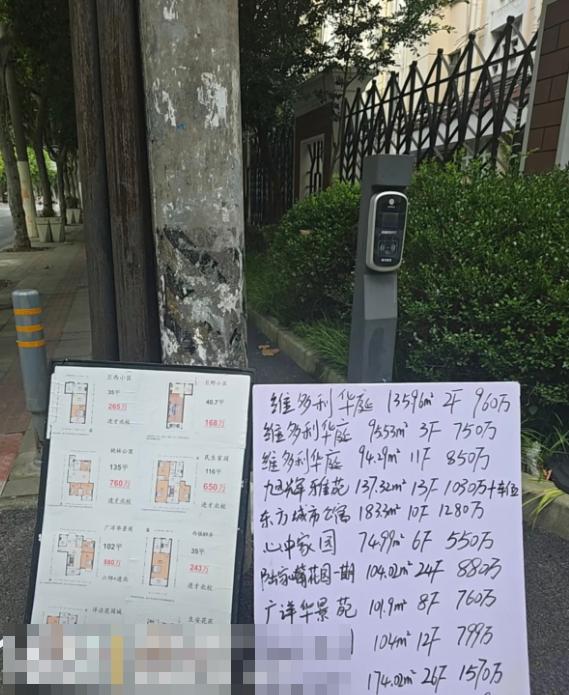 巨西小区
35平
265万
进才北校
巨野小区
40.7平
168万
桃林公寓
135平
760万
进才北校
民生家园
116平
650万
进才北校
广洋华景苑
102平
880万
35平
243万
进才北校
维多利华庭 135.96m² 2F 960万
维多利华庭 95.53m² 3F 750万
维多利华庭 94.29m² 11F 850万
旭辉雅苑 137.32m² 13F 1030万+车位
东方城市公寓 183.3m² 10F 1280万
心中家园 74.99m² 6F 550万
陆家嘴花园一期 104.02m² 24F 880万
广洋华景苑 101.9m² 8F 760万
104m² 12F 799万
174.02m² 26F 1570万